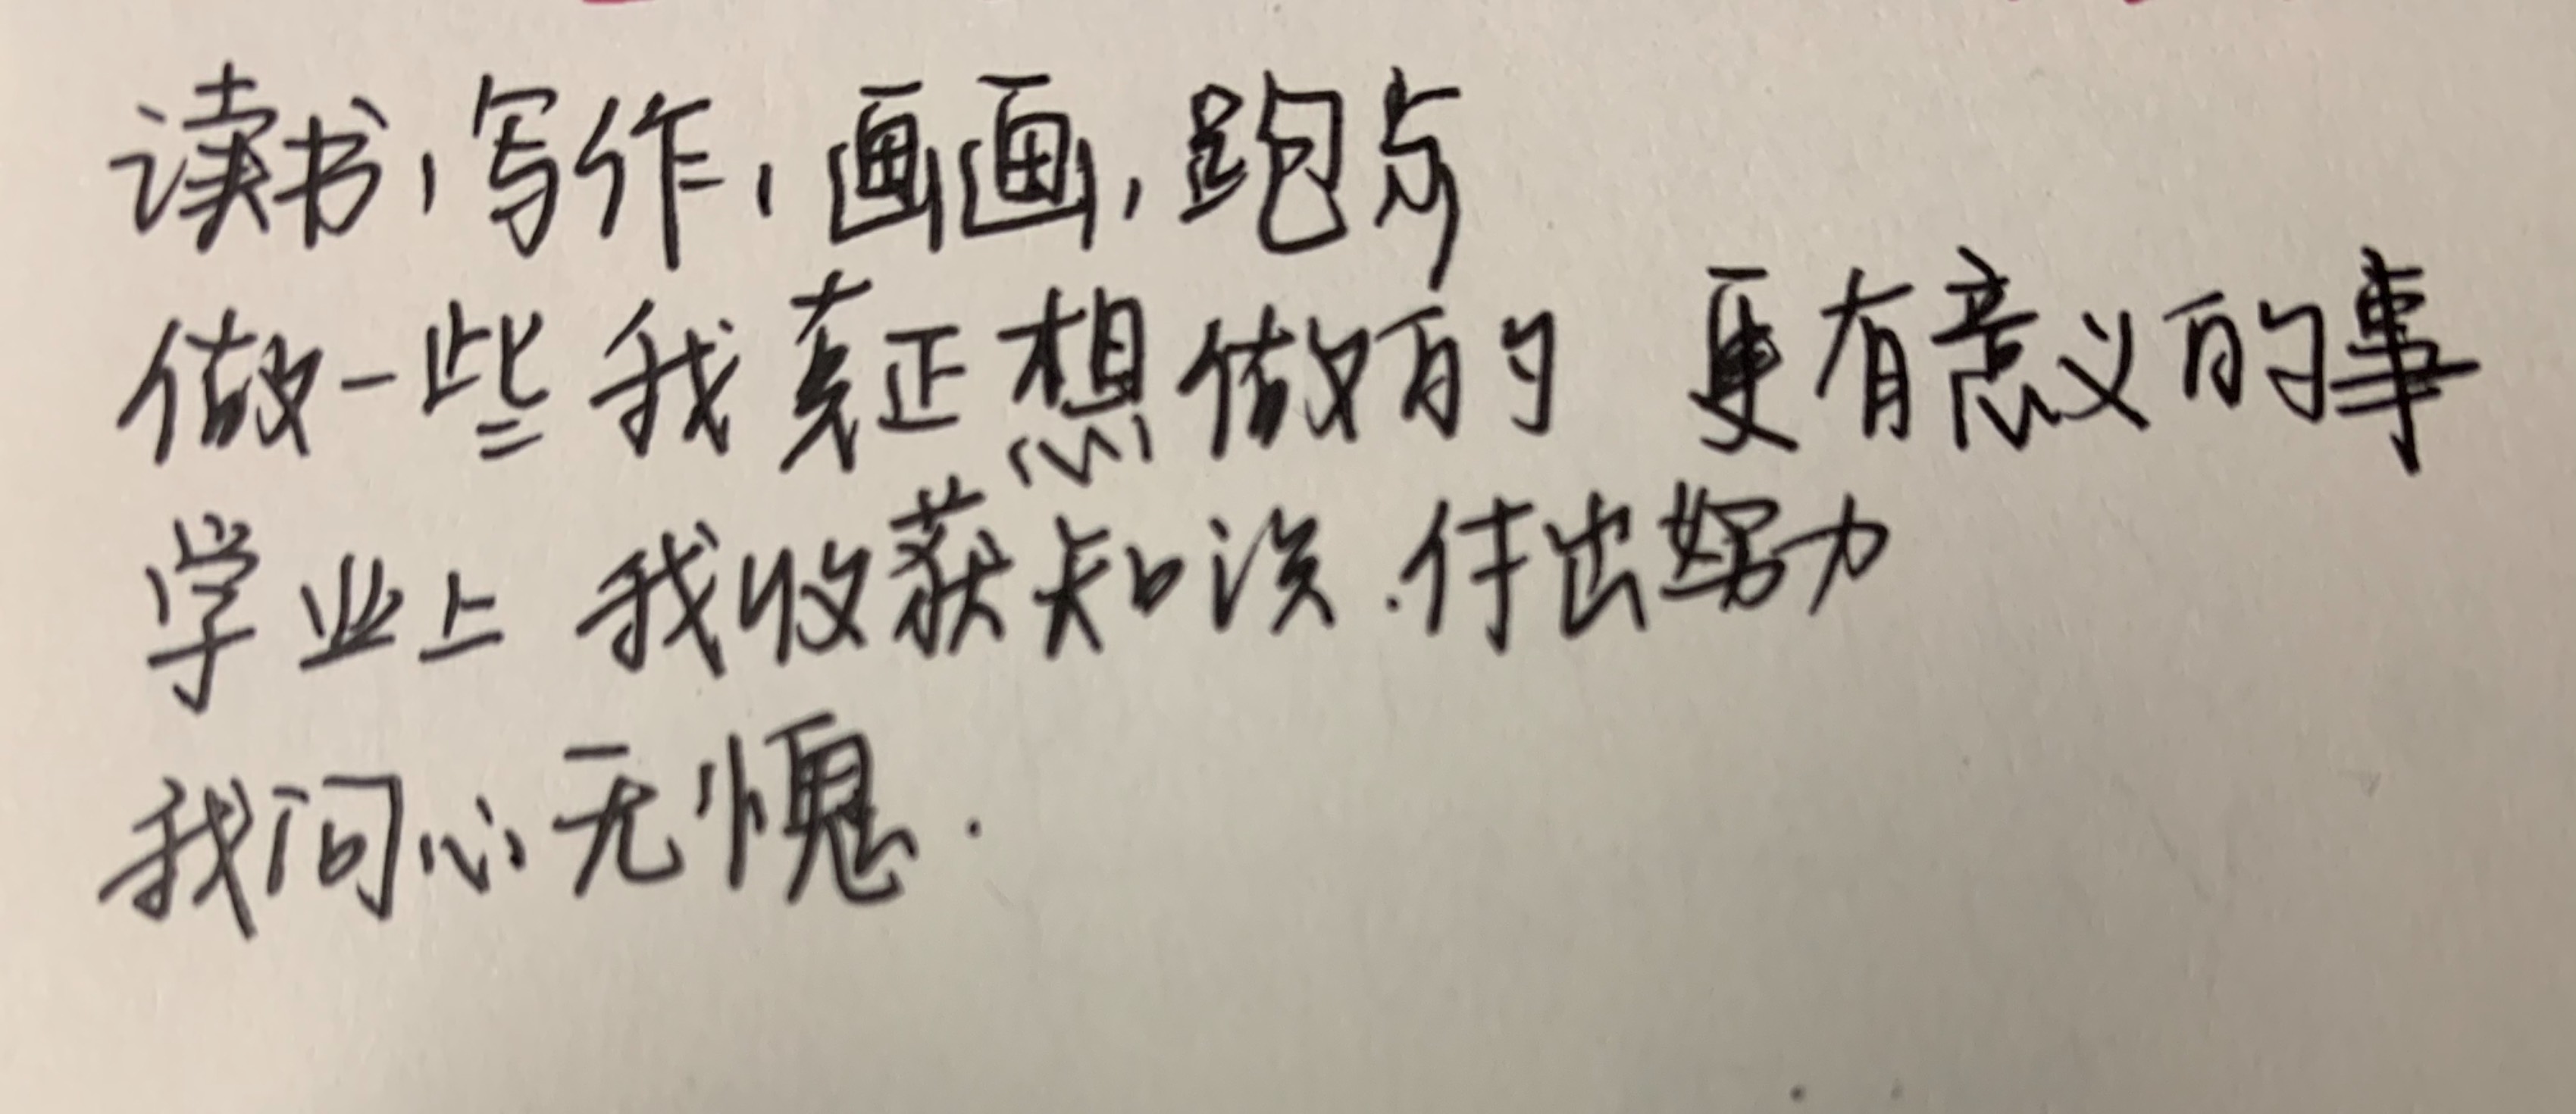 读书，写作，画画，跑步
做一些我真正想做的 更有意义的事
学业上 我收获知识.付出努力
我问心无愧.